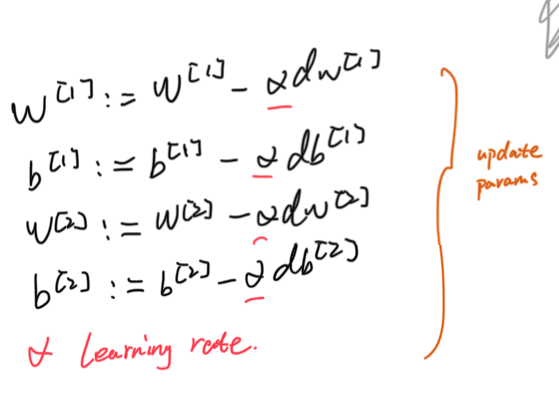 w^[1] := w^[1] - αdw^[1]
b^[1] := b^[1] - αdb^[1]
w^[2] := w^[2] - αdw^[2]
b^[2] := b^[2] - αdb^[2]
update
params
α learning rate.